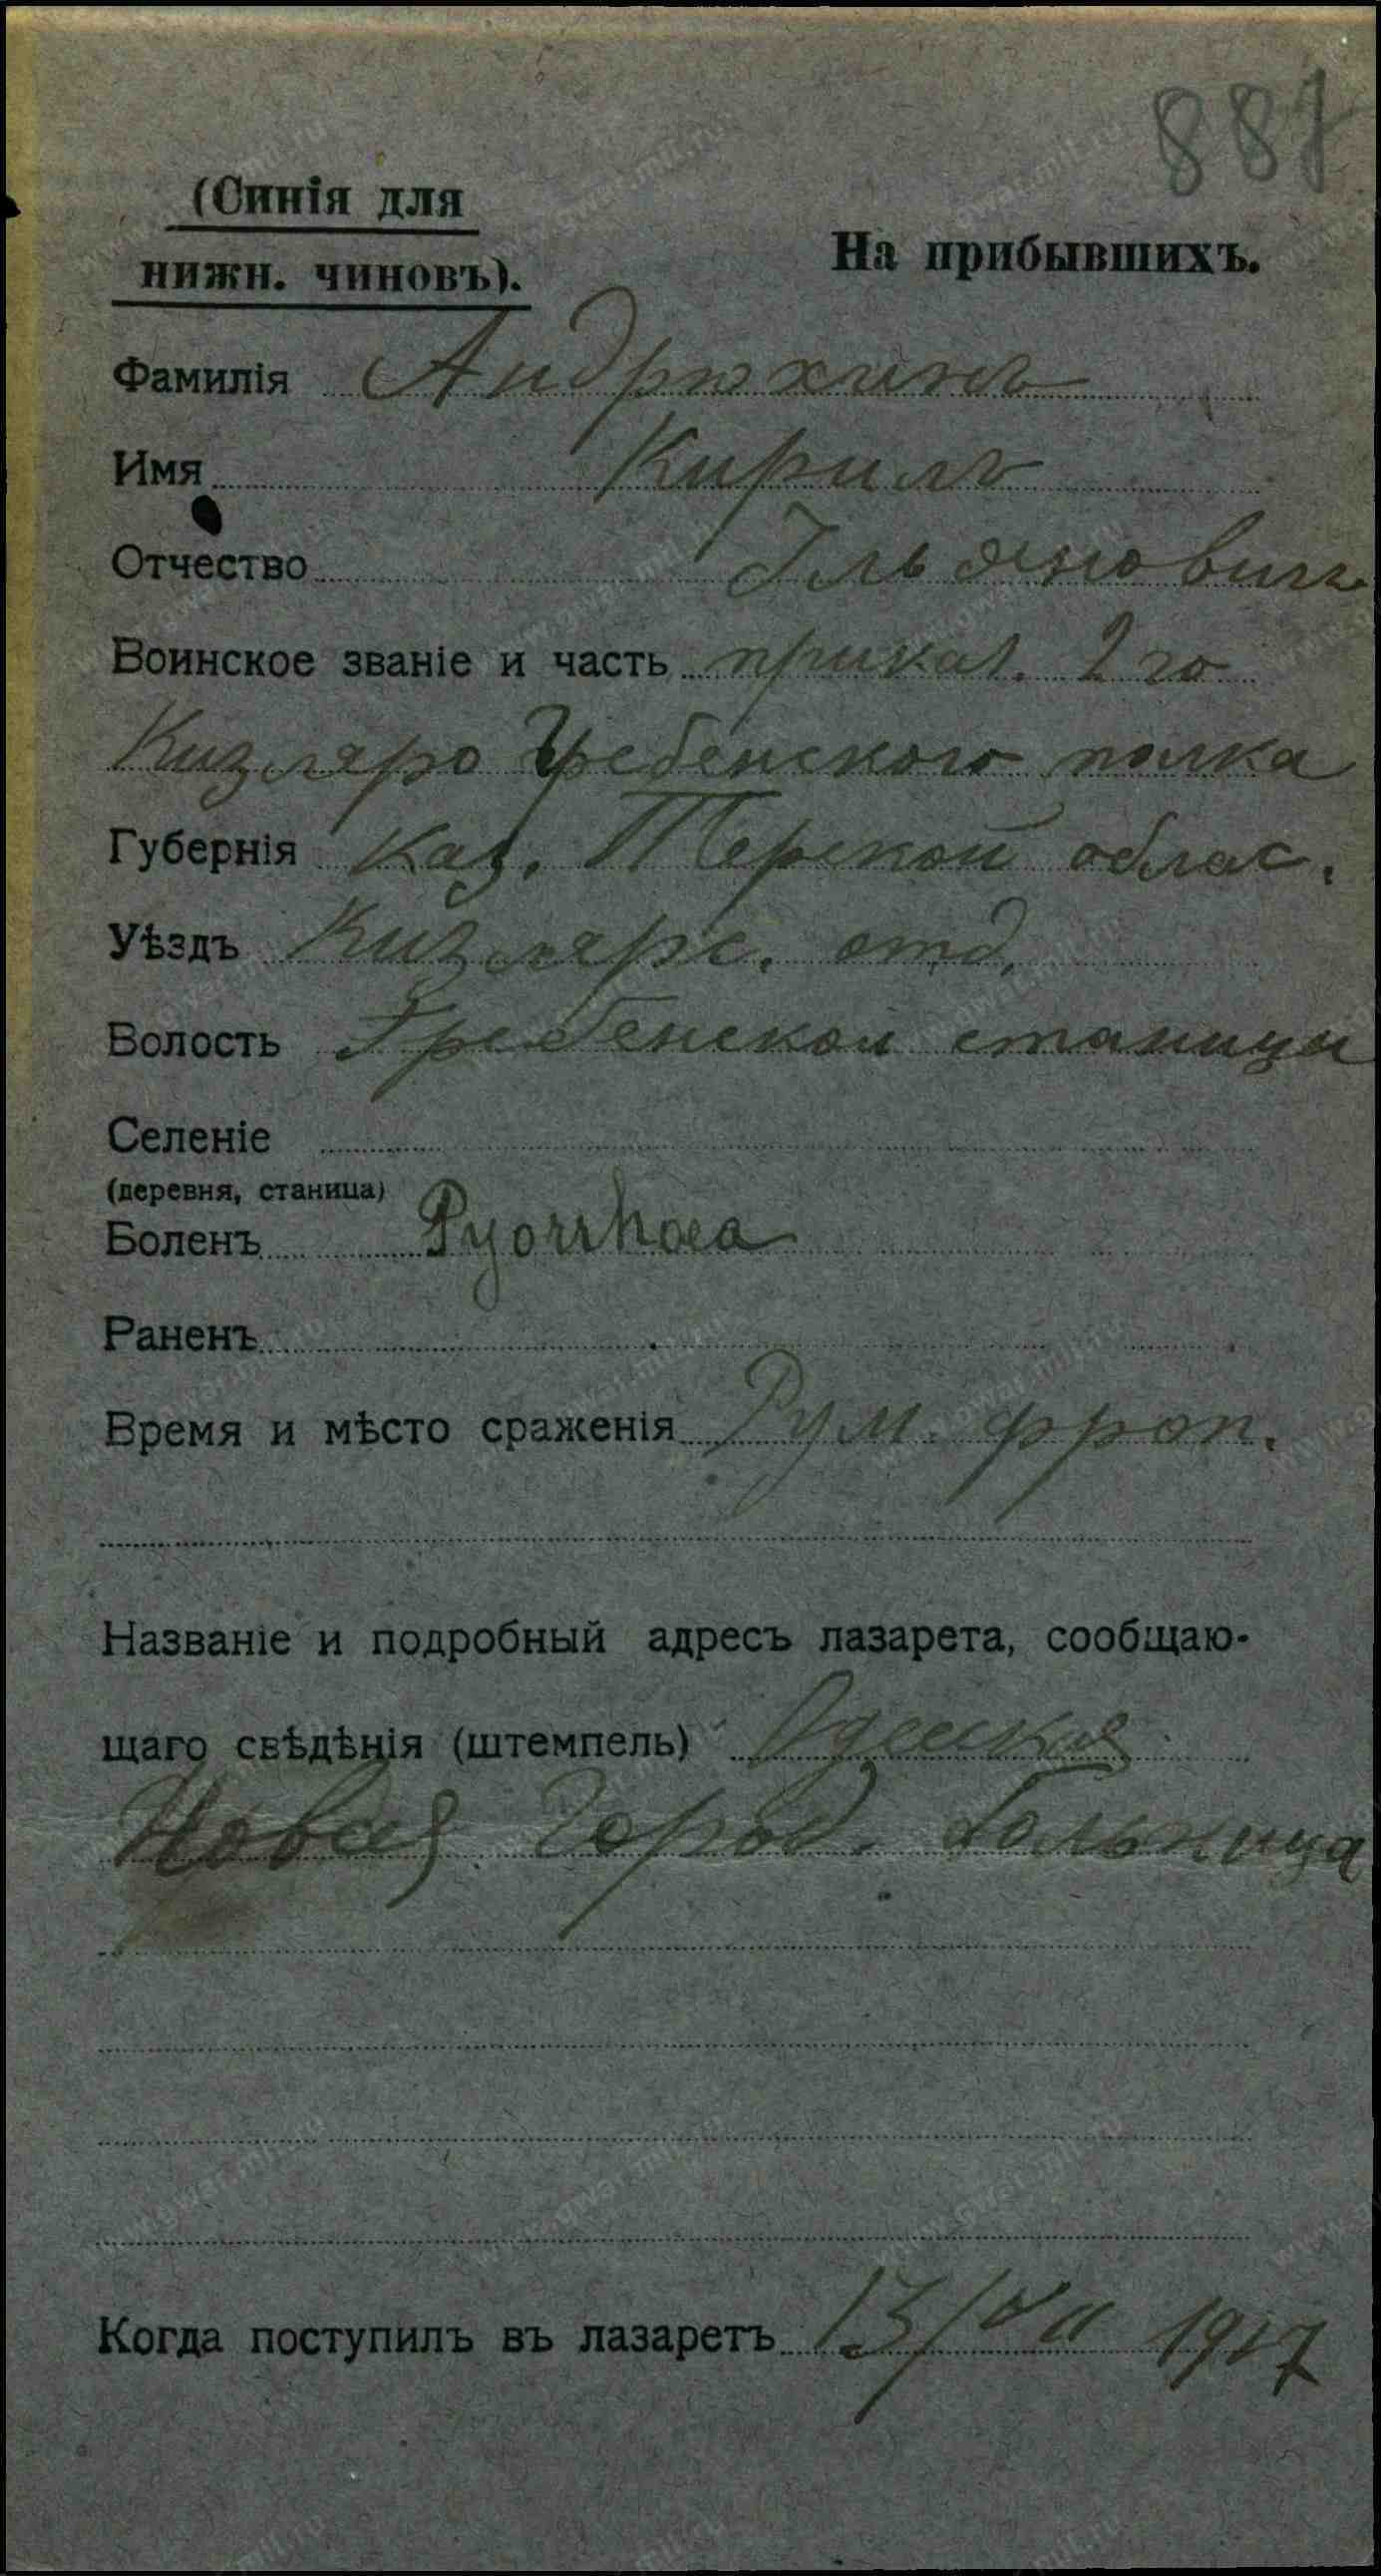 887
(Синія для
нижн. чиновъ).
На прибывшихъ.
Фамилія Андрюхинъ
Имя Кирилъ
Отчество Ільяновичъ
Воинское званіе и часть приказ. 2 го
Кизляро Гребенского полка
Губернія Каз. Терской облас.
Уѣздъ Кизлярс. отд.
Волость Гребенской станицы
Селеніе
(деревня, станица)
Боленъ Pyorrhoea
Раненъ
Время и мѣсто сраженія Рум. фрон.
Названіе и подробный адресъ лазарета, сообщаю-
щаго свѣдѣнія (штемпель) Одесская
Новая Город. больница
Когда поступилъ въ лазаретъ 13/VII 1917